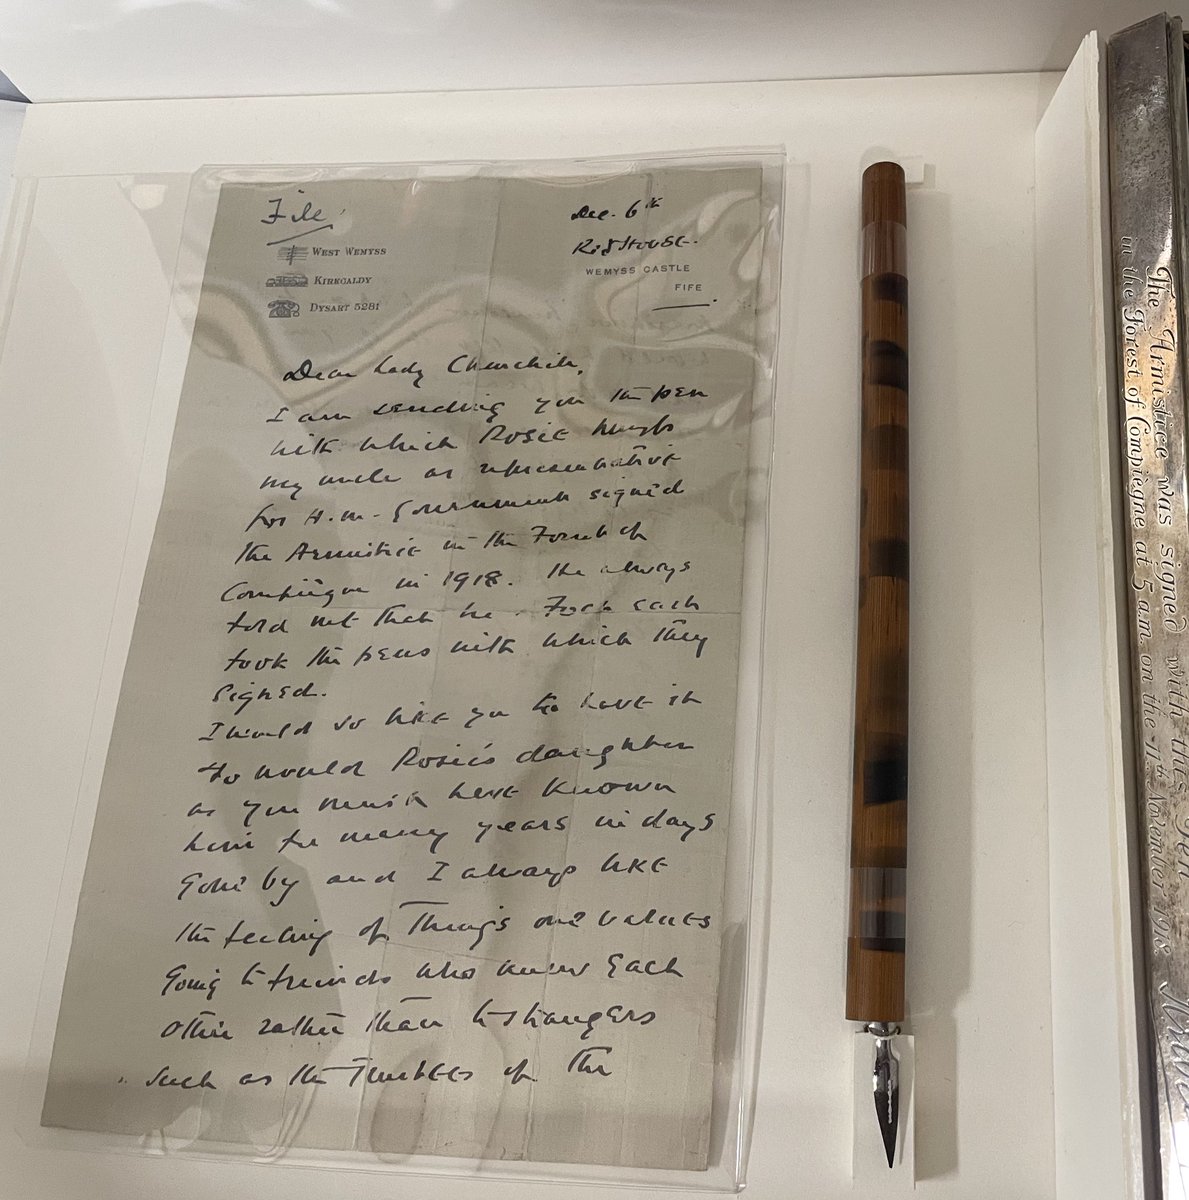 File.
WEST WEMYSS
KIRKCALDY
DYSART 5281
Dec. 6th
Red House.
WEMYSS CASTLE
FIFE
Dear Lady Churchill,
I am sending you the pen
with which Rosie Wemyss
my uncle as representative
for H.M. Government signed
the Armistice in the Forest of
Compiègne in 1918. He always
told me that he & Foch each
took the pens with which they
signed.
I would so like you to have it
& so would Rosie's daughter
as you must have known
him for many years in days
gone by and I always like
the feeling of Things one values
going to friends who knew Each
other rather than to strangers
such as the Trustees of the
The Armistice was signed with this Pen
in the Forest of Compiegne at 5 a.m. on the 11th November 1918